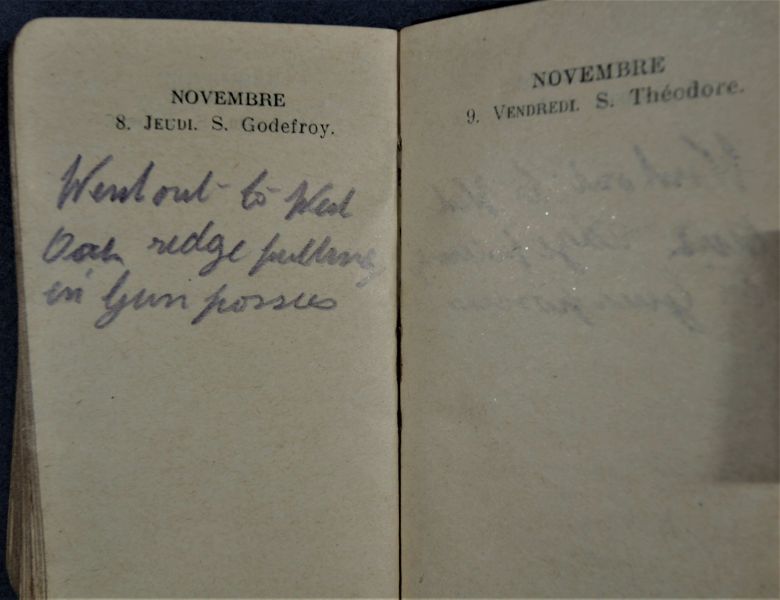 NOVEMBRE
8. JEUDI. S. Godefroy.
Went out to Wed
Oak redge putting
in Gun possies
NOVEMBRE
9. VENDREDI. S. Théodore.